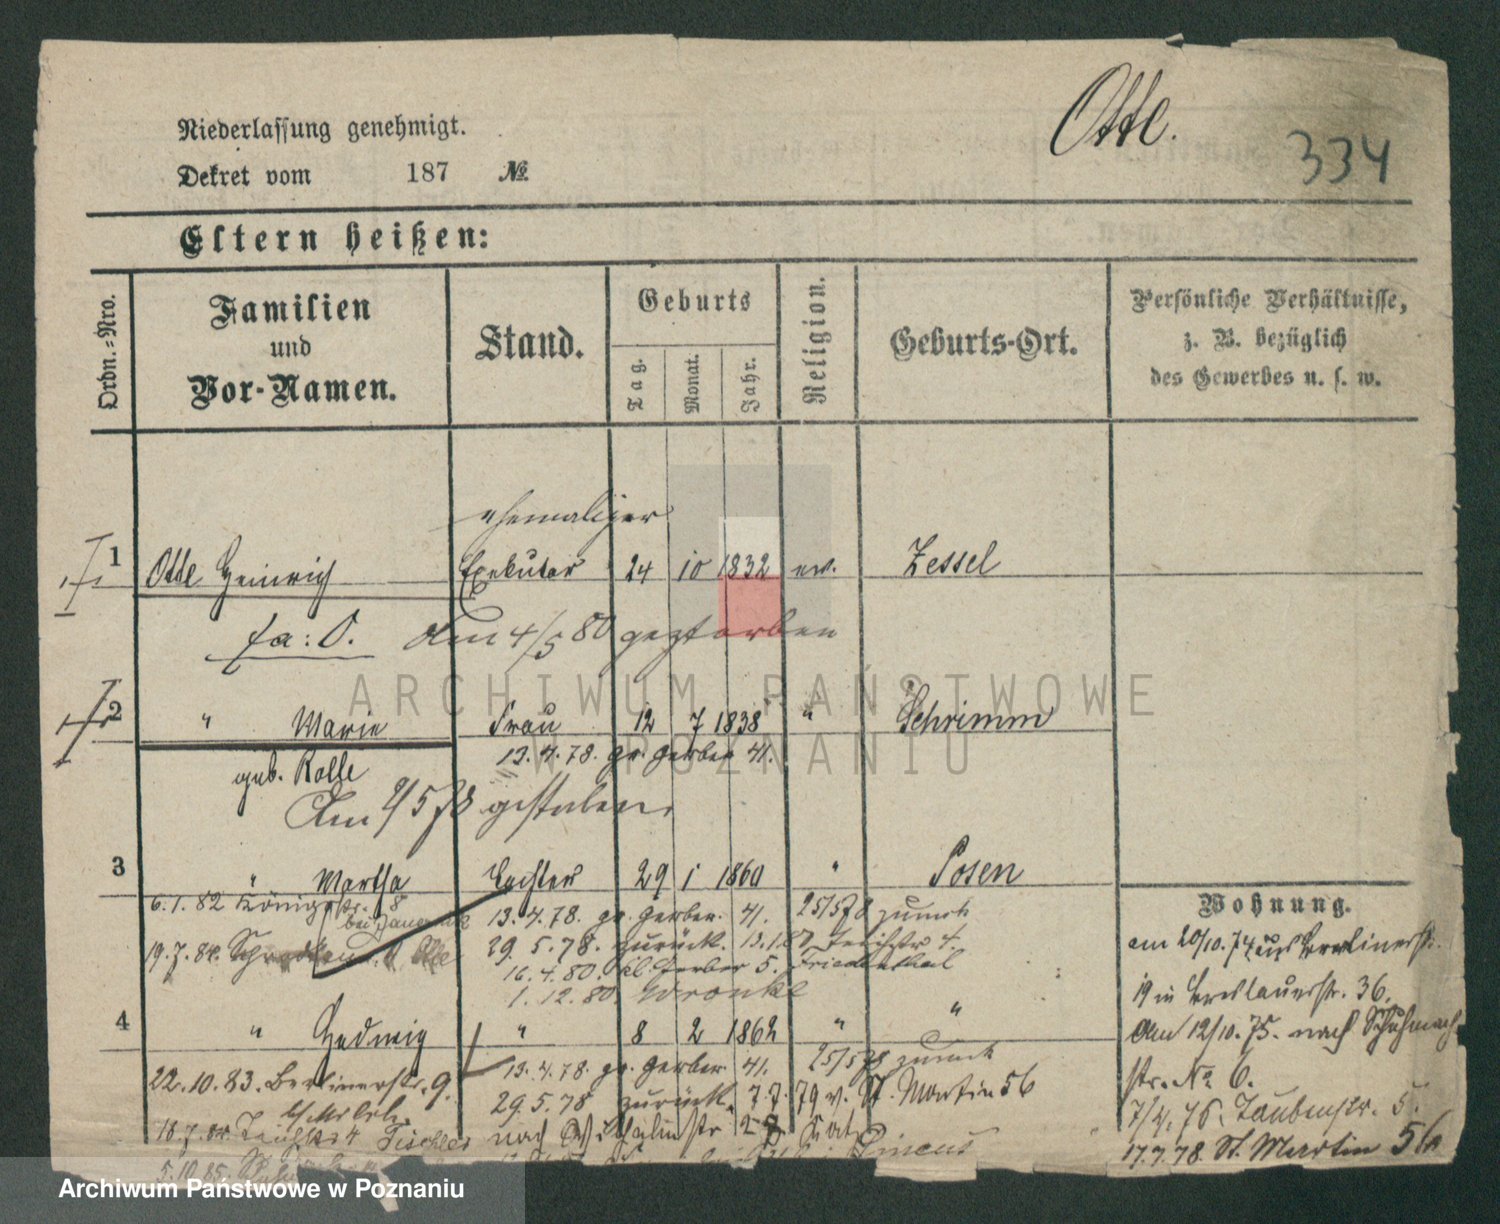 Otte.
334
Niederlassung genehmigt.
Dekret vom 187 №
Eltern heißen:
Ordn.-Nro.
Familien
und
Vor-Namen.
Stand.
Geburts
Tag.
Monat.
Jahr.
Religion.
Geburts-Ort.
Persönliche Verhältnisse,
z. B. bezüglich
des Gewerbes u. s. w.
ehemaliger
1 Otte Heinrich Exekutor 24 10 1832 ev. Zessel
fa: O. den 4/5 80 gestorben
2 " Marie Frau 12 7 1838 " Schrimm
geb. Rolle 13.4.78. gr. Gerber 41.
Am 2/5 78 gestorben.
3 " Martha Tochter 29 1 1860 " Posen
6.1.82 Königstr. 8 13.4.78. gr. Gerber. 41. 25/5 78 zurück
19.7.84. 29.5.78. zurück. Teichstr 4.
16.4.80. kl. Gerber 5. Friedenthal
1.12.80. Wronke
4 " Hedwig " 8 2 1862 " "
22.10.83. Berlinerstr. 9. 13.4.78. gr. Gerber. 41. 25/5 78 zurück
29.5.78 zurück. 7.7.79 v. St. Martin 56
18.7.84. Teichstr 4 Tischler nach
5.10.85. Pincus
Wohnung.
am 20/10.74 aus Berlinerstr.
19 in Breslauerstr. 36.
Am 12/10.75. nach Schuhmach
str. No 6.
7/4.76. Taubenstr. 5.
17.7.78. St. Martin 56a
ARCHIWUM PAŃSTWOWE
W POZNANIU
Archiwum Państwowe w Poznaniu